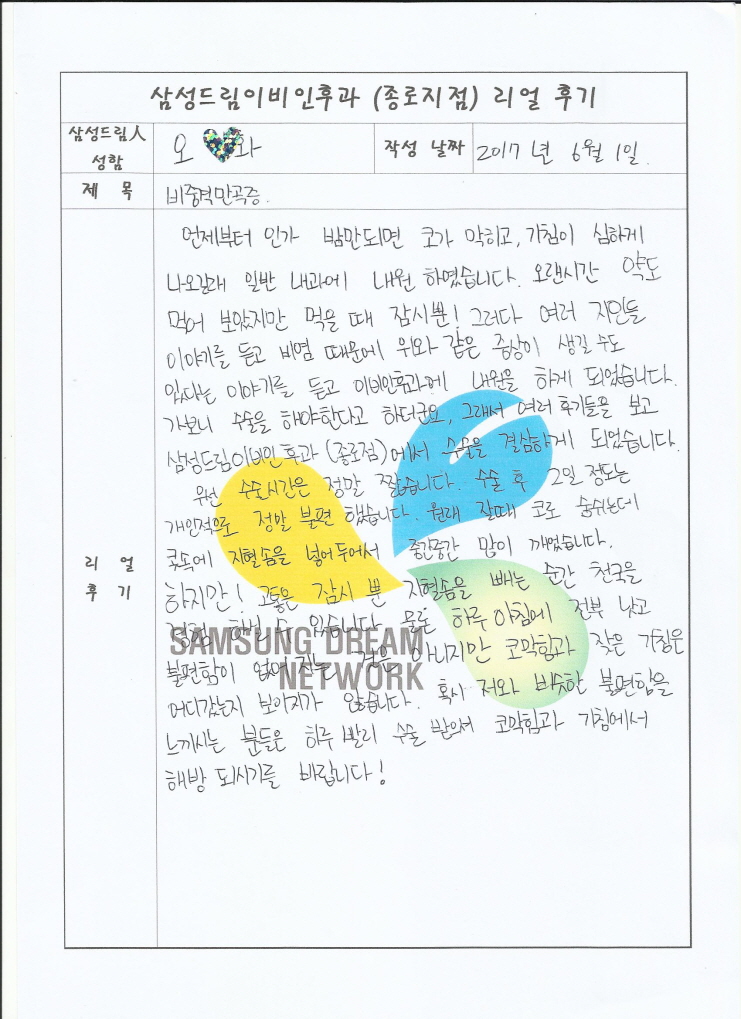 삼성드림이비인후과 (종로지점) 리얼 후기
삼성드림人 성함 오 화 작성 날짜 2017년 6월 1일.
제 목 비중격만곡증.
언제부터 인가 밤만되면 코가 막히고, 기침이 심하게
나오길래 일반 내과에 내원 하였습니다. 오랜시간 약도
먹어 보았지만 먹을 때 잠시뿐! 그러다 여러 지인들
이야기를 듣고 비염 때문에 위와 같은 증상이 생길 수도
있다는 이야기를 듣고 이비인후과에 내원을 하게 되었습니다.
가보니 수술을 해야한다고 하더군요, 그래서 여러 후기들을 보고
삼성드림이비인후과 (종로점)에서 수술을 결심하게 되었습니다.
우선 수술시간은 정말 짧습니다. 수술 후 2일 정도는
개인적으로 정말 불편 했습니다. 원래 잘때 코로 숨쉬는데
콧속에 지혈솜을 넣어두어서 중간중간 많이 깨었습니다.
리 얼 후 기
하지만! 고통은 잠시 뿐 지혈솜을 빼는 순간 천국을
경험 하실 수 있습니다. 물론 하루 아침에 전부 낫고
불편함이 없어 지는 것은 아니지만 코막힘과 잦은 기침은
어디갔는지 보이지가 않습니다. 혹시 저와 비슷한 불편함을
느끼시는 분들은 하루 빨리 수술 받으셔 코막힘과 기침에서
해방 되시기를 바랍니다!
SAMSUNG DREAM
NETWORK